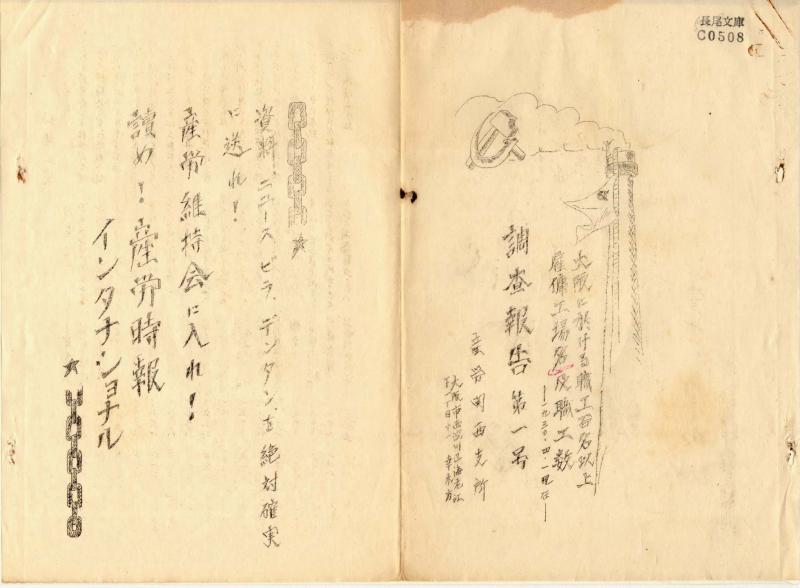 長尾文庫
C0508
大阪に於ける職工百名以上
雇傭工場名及職工数
―一九三〇・四・一現在―
調査報告第一号
産労関西支所
資料、ニュース、ビラ、デンタンを絶対確実
に送れ!
産労維持会に入れ!
讀め!産労時報
インタナショナル